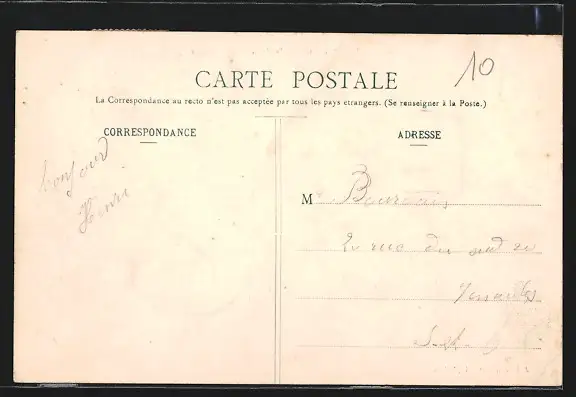 10
CARTE POSTALE
La Correspondance au recto n'est pas acceptée par tous les pays étrangers. (Se renseigner à la Poste.)
CORRESPONDANCE
ADRESSE
bonjour
Henri
M
rue du
Versailles